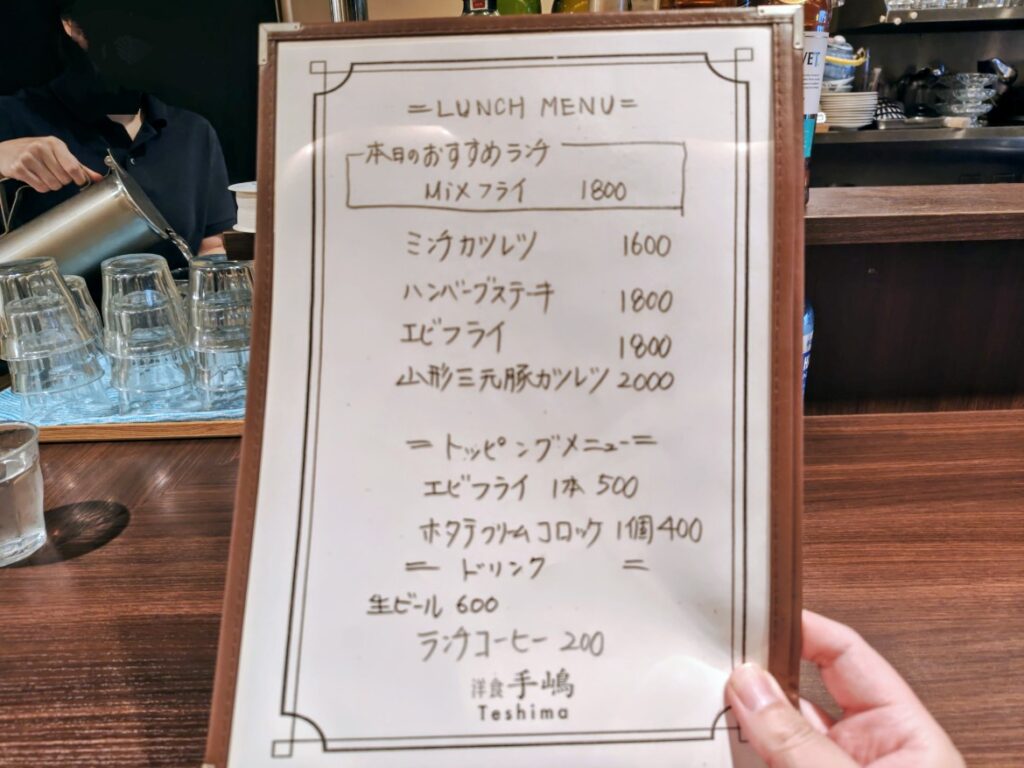 =LUNCH MENU=
本日のおすすめランチ
MiXフライ 1800
ミンチカツレツ 1600
ハンバーグステーキ 1800
エビフライ 1800
山形三元豚カツレツ 2000
=トッピングメニュー=
エビフライ 1本 500
ホタテクリームコロッケ 1個 400
= ドリンク =
生ビール 600
ランチコーヒー 200
洋食 手嶋
Teshima